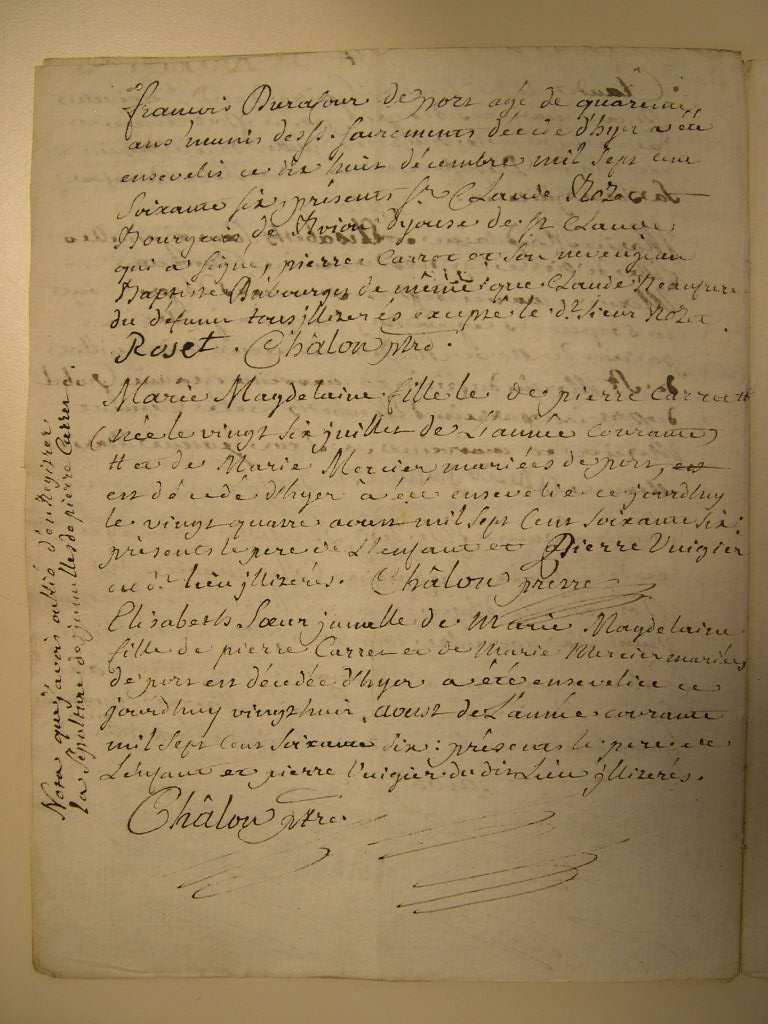 francois Durafour de port agé de quarente
ans munis des sts. sacrements décédé d'hyer a été
enseveli ce dix huit décembre mil sept cent
soixante six, présents sr. Claude Rozet
Bourgeois de diocese de st Claude
qui a signé, pierre Carret et son neveu jean
Baptiste Bibourget de même que Claude Beaupere
du defunt tous jllizerés excepté le dt. sieur Rozet
Roset. Châlon ptre.
Marie Magdelaine fille le de pierre Carret #
(née le vingt six juillet de L'année courante)
# et de Marie Mercier mariées de port, est
est décédé d'hyer à été ensevelie ce jourdhuy
le vingt quatre aoust mil sept cent soixante six:
présents le pere de L'enfant et Pierre Vuigier
du dt. lieu jllizérés. Châlon prerre
Elisabeth Sœur jumelle de Marie Magdelaine
fille de pierre Carret et de Marie Mercier mariés
de port est décedée d'hyer a été ensevelie ce
jourdhuy vingt huit aoust de L'année courante
mil sept cent soixante six: présents le pere de
L'enfant et pierre Vuigier du dit Lieu jllizerés.
Châlon ptre.
Nota que j'avois oublié d'enregistrer
la sépolture de jumelles de pierre Carret c.